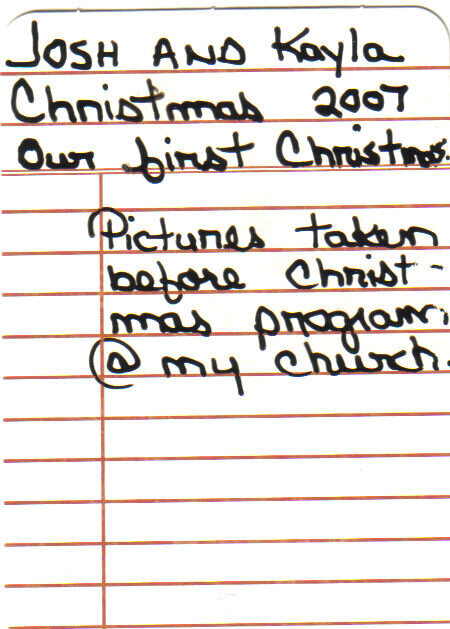 JOSH AND Kayla
Christmas 2007
Our first Christmas.
Pictures taken
before Christ-
mas program,
@ my church.